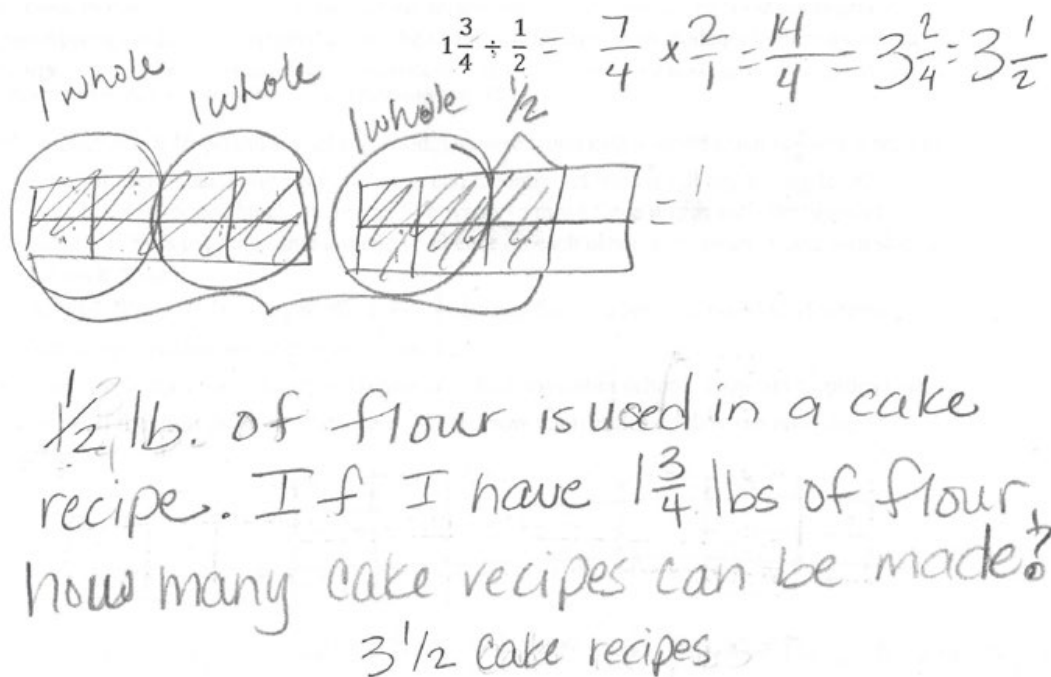 1 3/4 ÷ 1/2 = 7/4 x 2/1 = 14/4 = 3 2/4 = 3 1/2
1 whole 1 whole 1 whole 1/2
=
1/2 lb. of flour is used in a cake
recipe. If I have 1 3/4 lbs of flour
how many cake recipes can be made?
3 1/2 cake recipes